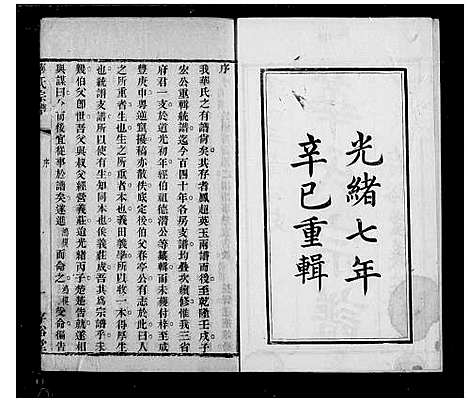 光緒七年
辛巳重輯
序
我華氏之有譜尚矣其存者鳳超英玉兩譜而後至乾隆壬戌子
宏公重輯統譜迄今百四十年各房支譜均疊次續修惟我三省
府君一支於道光初年經伯祖德清公等纂輯而未獲付梓至咸
豐庚申粵逆竄擾稿亦散佚底定後伯父春亭公有志於此曰人
之所重者生也生之所重者本也義田義學所以收一本得厚生
也統譜支譜所以使有生知同本也俟義莊成吾其為宗譜乎
父即世吾父與叔父經營義莊迨光緒丙子楚楚皆就遂相
與謀曰今而後宜從事於譜矣遂進鴻模而命之鴻模受命徧告
序